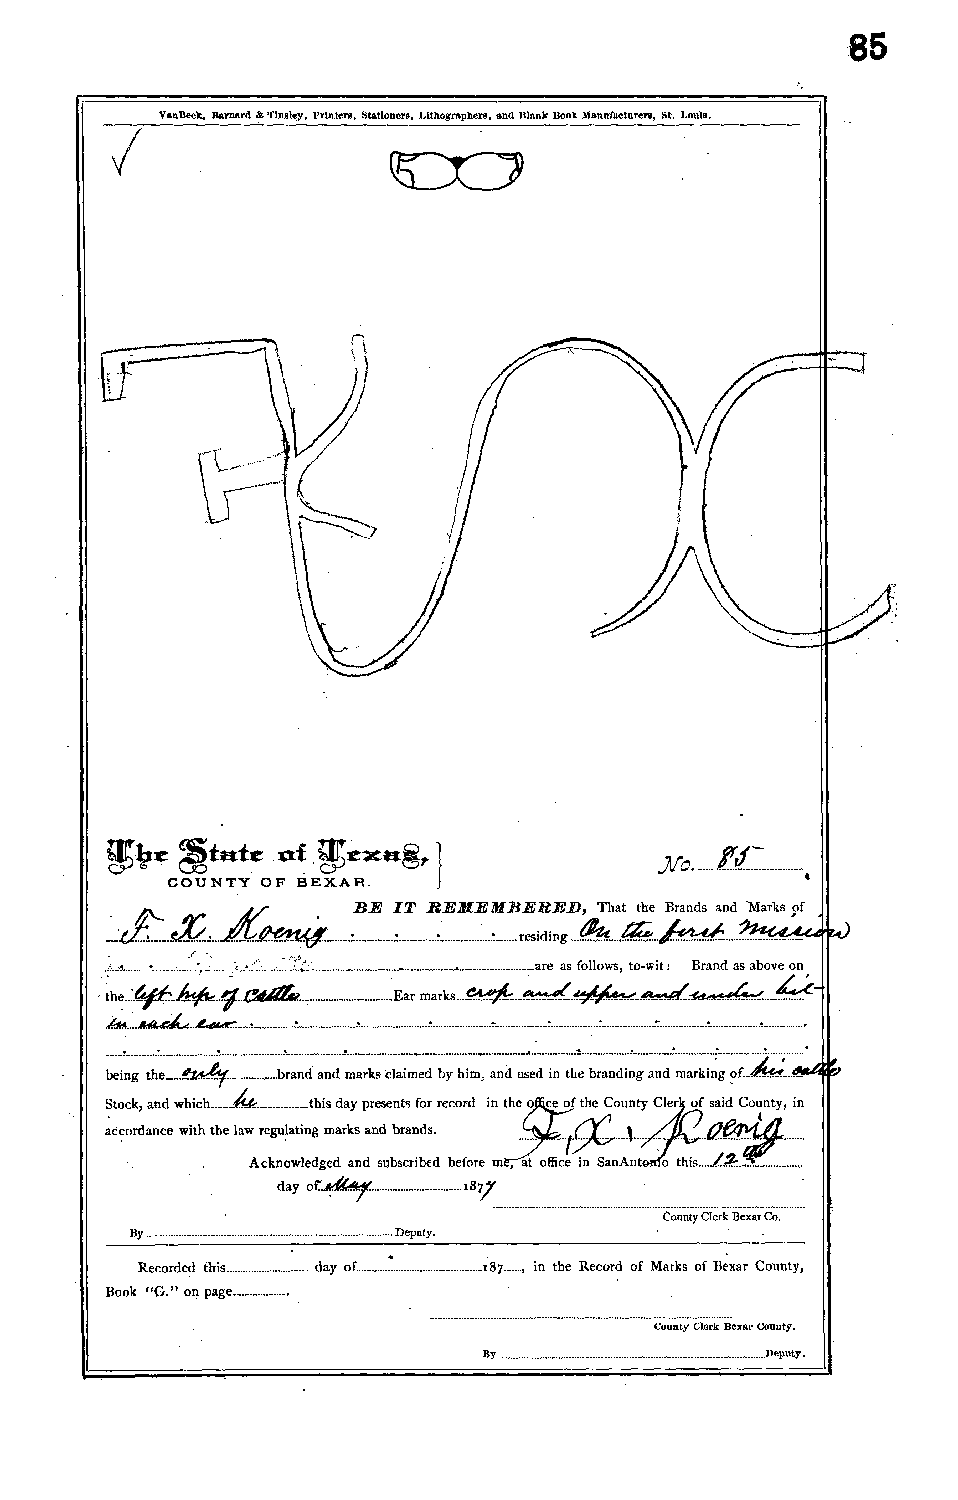 85
VanBeek, Barnard & Tinsley, Printers, Stationers, Lithographers, and Blank Book Manufacturers, St. Louis.
The State of Texas,
COUNTY OF BEXAR.
No. 85
BE IT REMEMBERED, That the Brands and Marks of
F. X. Koenig residing On the first Mission
are as follows, to-wit: Brand as above on
the left hip of Cattle Ear marks crop and upper and under bit
in each ear
being the only brand and marks claimed by him, and used in the branding and marking of his cattle
Stock, and which he this day presents for record in the office of the County Clerk of said County, in
accordance with the law regulating marks and brands. F. X. Koenig
Acknowledged and subscribed before me, at office in SanAntonio this 12th
day of May 1877
County Clerk Bexar Co.
By Deputy.
Recorded this day of 187 , in the Record of Marks of Bexar County,
Book "G." on page .
County Clerk Bexar County.
By Deputy.